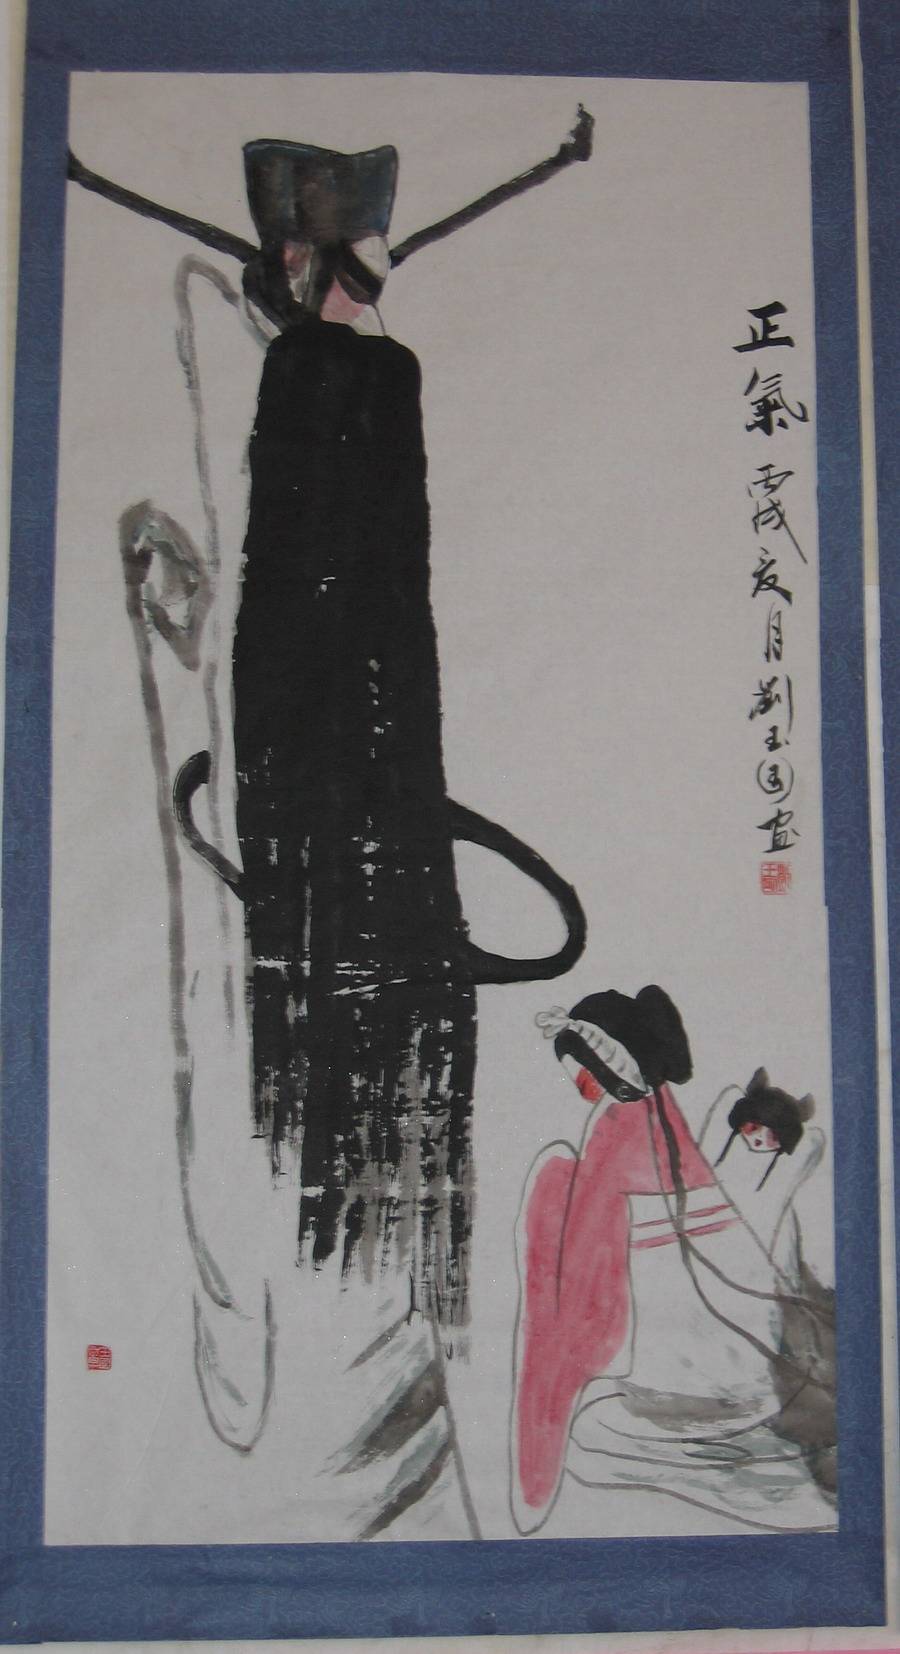 正氣 丙戌夏月劉玉国画